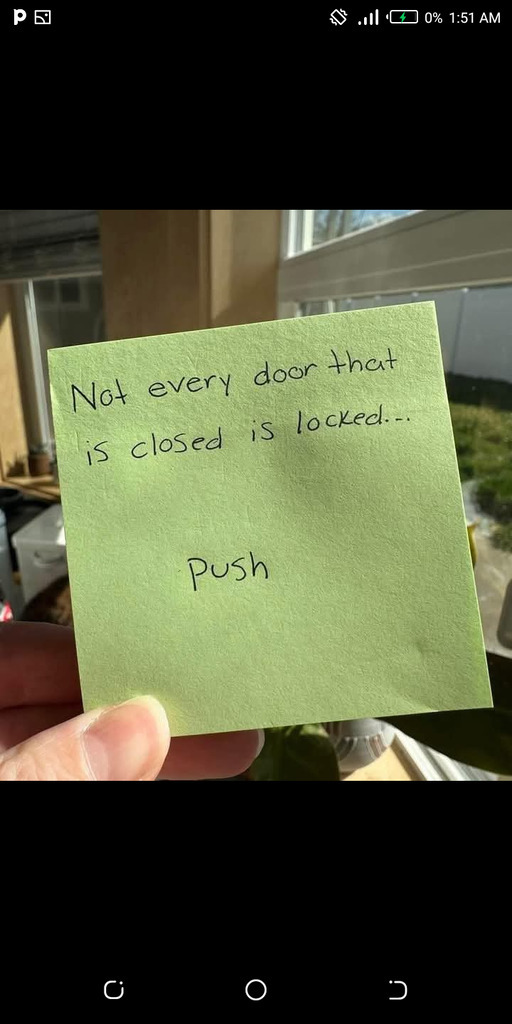 0% 1:51 AM
Not every door that
is closed is locked...
Push